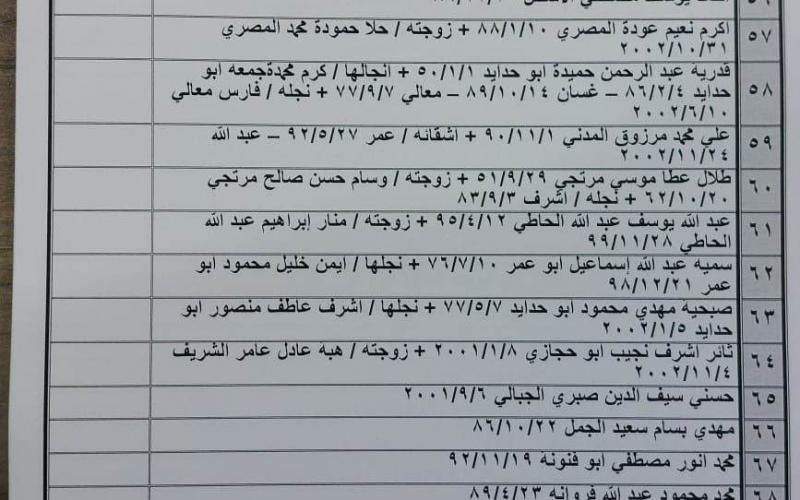 ٥٧ اكرم نعيم عودة المصري ٨٨/١/١٠ + زوجته / حلا حمودة محمد المصري
٢٠٠٢/١٠/٣١
٥٨ قدرية عبد الرحمن حميدة ابو حدايد ٥٠/١/١ + انجالها / كرم محمدةجمعه ابو
حدايد ٨٦/٢/٤ – غسان ٨٩/١٠/١٤ – معالي ٧٧/٩/٧ + نجله / فارس معالي
٢٠٠٢/٦/١٠
٥٩ علي محمد مرزوق المدني ٩٠/١١/١ + اشقائه / عمر ٩٢/٥/٢٧ – عبد الله
٢٠٠٢/١١/٢٤
٦٠ طلال عطا موسي مرتجي ٥١/٩/٢٩ + زوجته / وسام حسن صالح مرتجي
٦٢/١٠/٢٠ + نجله / اشرف ٨٣/٩/٣
٦١ عبد الله يوسف عبد الله الحاطي ٩٥/٤/١٢ + زوجته / منار إبراهيم عبد الله
الحاطي ٩٩/١١/٢٨
٦٢ سميه عبد الله إسماعيل ابو عمر ٧٦/٧/١٠ + نجلها / ايمن خليل محمود ابو
عمر ٩٨/١٢/٢١
٦٣ صبحية مهدي محمود ابو حدايد ٧٧/٥/٧ + نجلها / اشرف عاطف منصور ابو
حدايد ٢٠٠٢/١/٥
٦٤ ثائر اشرف نجيب ابو حجازي ٢٠٠١/١/٨ + زوجته / هبه عادل عامر الشريف
٢٠٠٢/١١/٤
٦٥ حسني سيف الدين صبري الجبالي ٢٠٠١/٩/٦
٦٦ مهدي بسام سعيد الجمل ٨٦/١٠/٢٢
٦٧ محمد انور مصطفي ابو فنونة ٩٢/١١/١٩
٦٨ محمد محمود عبد الله فروانه ٨٩/٤/٢٣